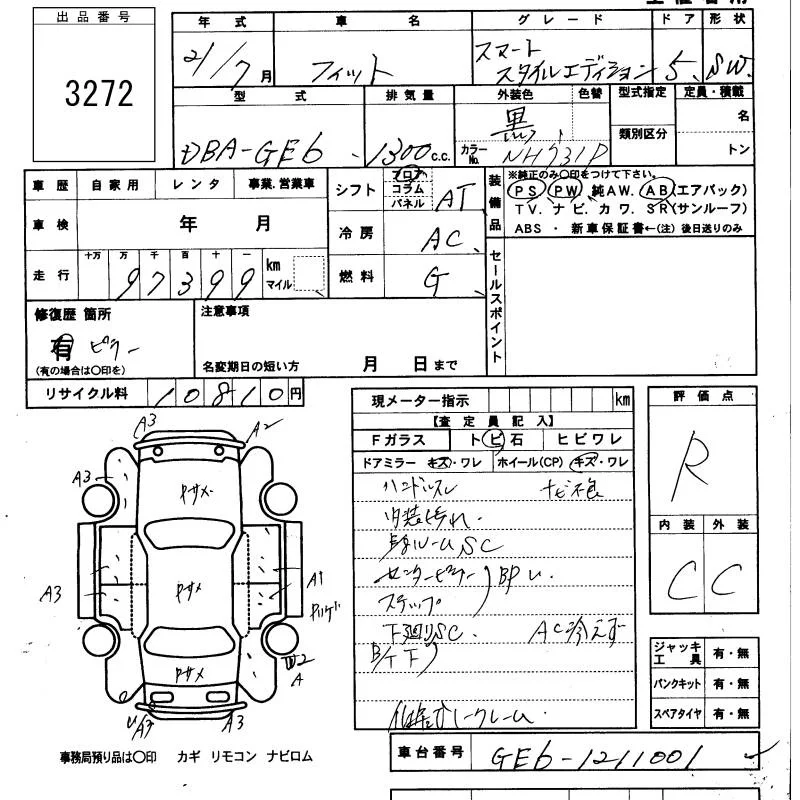 出品番号
3272
年 式 車 名 グ レ ー ド ドア 形 状
21/7月 フィット スマート スタイルエディション 5 SW
型 式 排気量 外装色 色替 型式指定 定員・積載
DBA-GE6 1300c.c. 黒 類別区分 名
カラーNo. NH731P トン
車歴 自家用 レンタ 事業.営業車
シフト フロア コラム パネル AT
装備品
※純正のみ〇印をつけて下さい。
PS PW 純AW. AB(エアバック)
TV. ナビ. カワ. SR(サンルーフ)
ABS ・ 新車保証書←(注) 後日送りのみ
車検 年 月
冷房 AC
走行 十万 万 千 百 十 一 km マイル
97399
燃料 G
セールスポイント
修復歴 箇所 注意事項
有 ピラー
(有の場合は〇印を) 名変期日の短い方 月 日まで
リサイクル料 10810円
現メーター指示 km
【査定員記入】
Fガラス ト ビ 石 ヒビワレ
ドアミラー キズ・ワレ ホイール(CP) キズ・ワレ
ハンドルスレ
内装汚れ
ルームSC
センターピラー BP
ステップ
下廻りSC. AC冷えず
ノークレーム.
評価点
R
内装 外装
C C
ジャッキ工具 有・無
パンクキット 有・無
スペアタイヤ 有・無
A3
A2
A3
A3
A1
A
A3
A3
事務局預り品は〇印 カギ リモコン ナビロム
車台番号 GE6-1211001